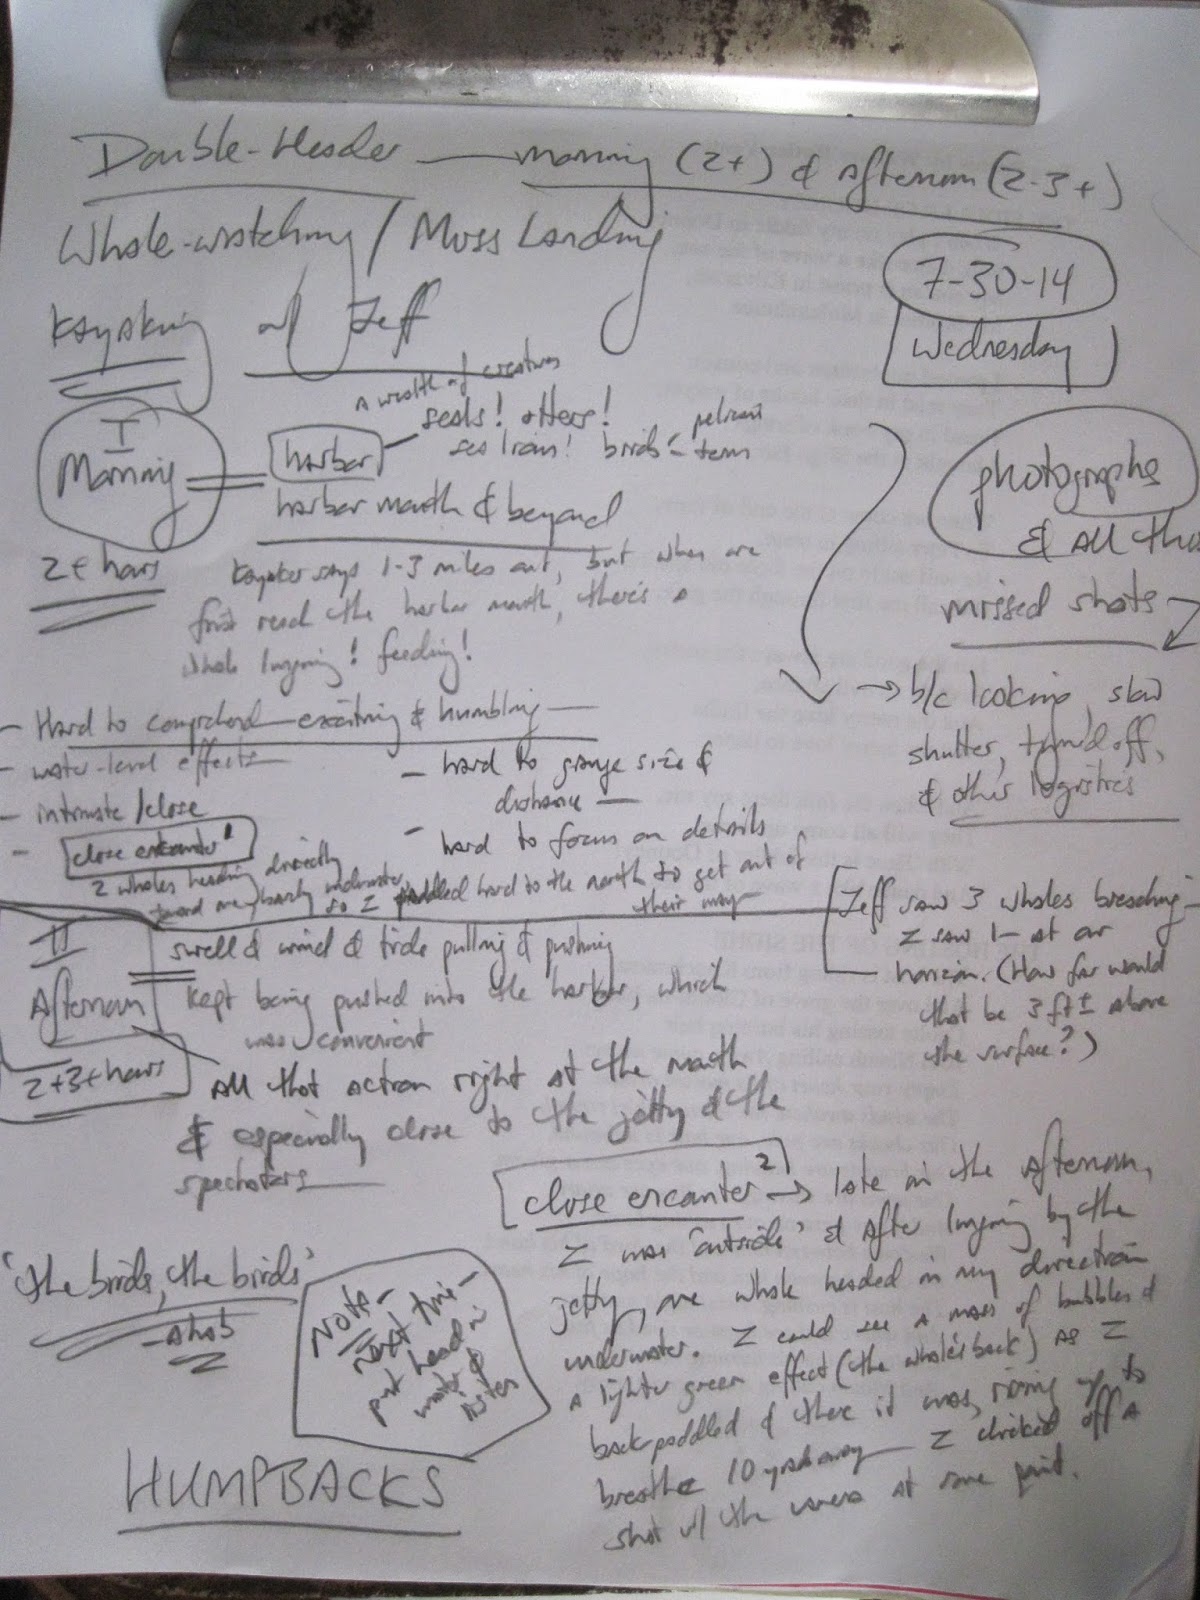 Double-Header — morning (2+) & afternoon (2-3+)
Whale-watching / Moss Landing
7-30-14
Wednesday
Kayaking w/ Jeff
I
Morning
2+ hours
a wealth of creatures
harbor - seals! otters!
sea lion! birds - pelicans
tern
harbor mouth & beyond
Kayaker says 1-3 miles out, but when we
first reach the harbor mouth, there's a
whale lunging! feeding!
photographs
& all the
missed shots
→ b/c looking, slow
shutter, turned off,
& other logistics
- Hard to comprehend — exciting & humbling —
- water-level effects
- intimate / close
- hard to gauge size &
distance —
- hard to focus on details
- close encounter 1
2 whales heading directly
toward me, barely underwater,
so I paddled hard to the north to get out of
their way
[Jeff saw 3 whales breaching -
I saw 1 - at our
horizon. (How far would
that be 3 ft ± above
the surface?)
II
Afternoon
2+3+ hours
swell & wind & tide pulling & pushing
kept being pushed into the harbor, which
was convenient
All that action right at the mouth
& especially close to the jetty & the
spectators
close encounter 2 → late in the afternoon,
I was 'outside' & after lunging by the
jetty, one whale headed in my direction
underwater. I could see a mass of bubbles &
a lighter green effect (the whale's back) as I
backpaddled & there it was, rising up to
breathe 10 yards away — I clicked off a
shot w/ the camera at some point.
'the birds, the birds'
Note -
next time -
put head in
water &
listen
HUMPBACKS